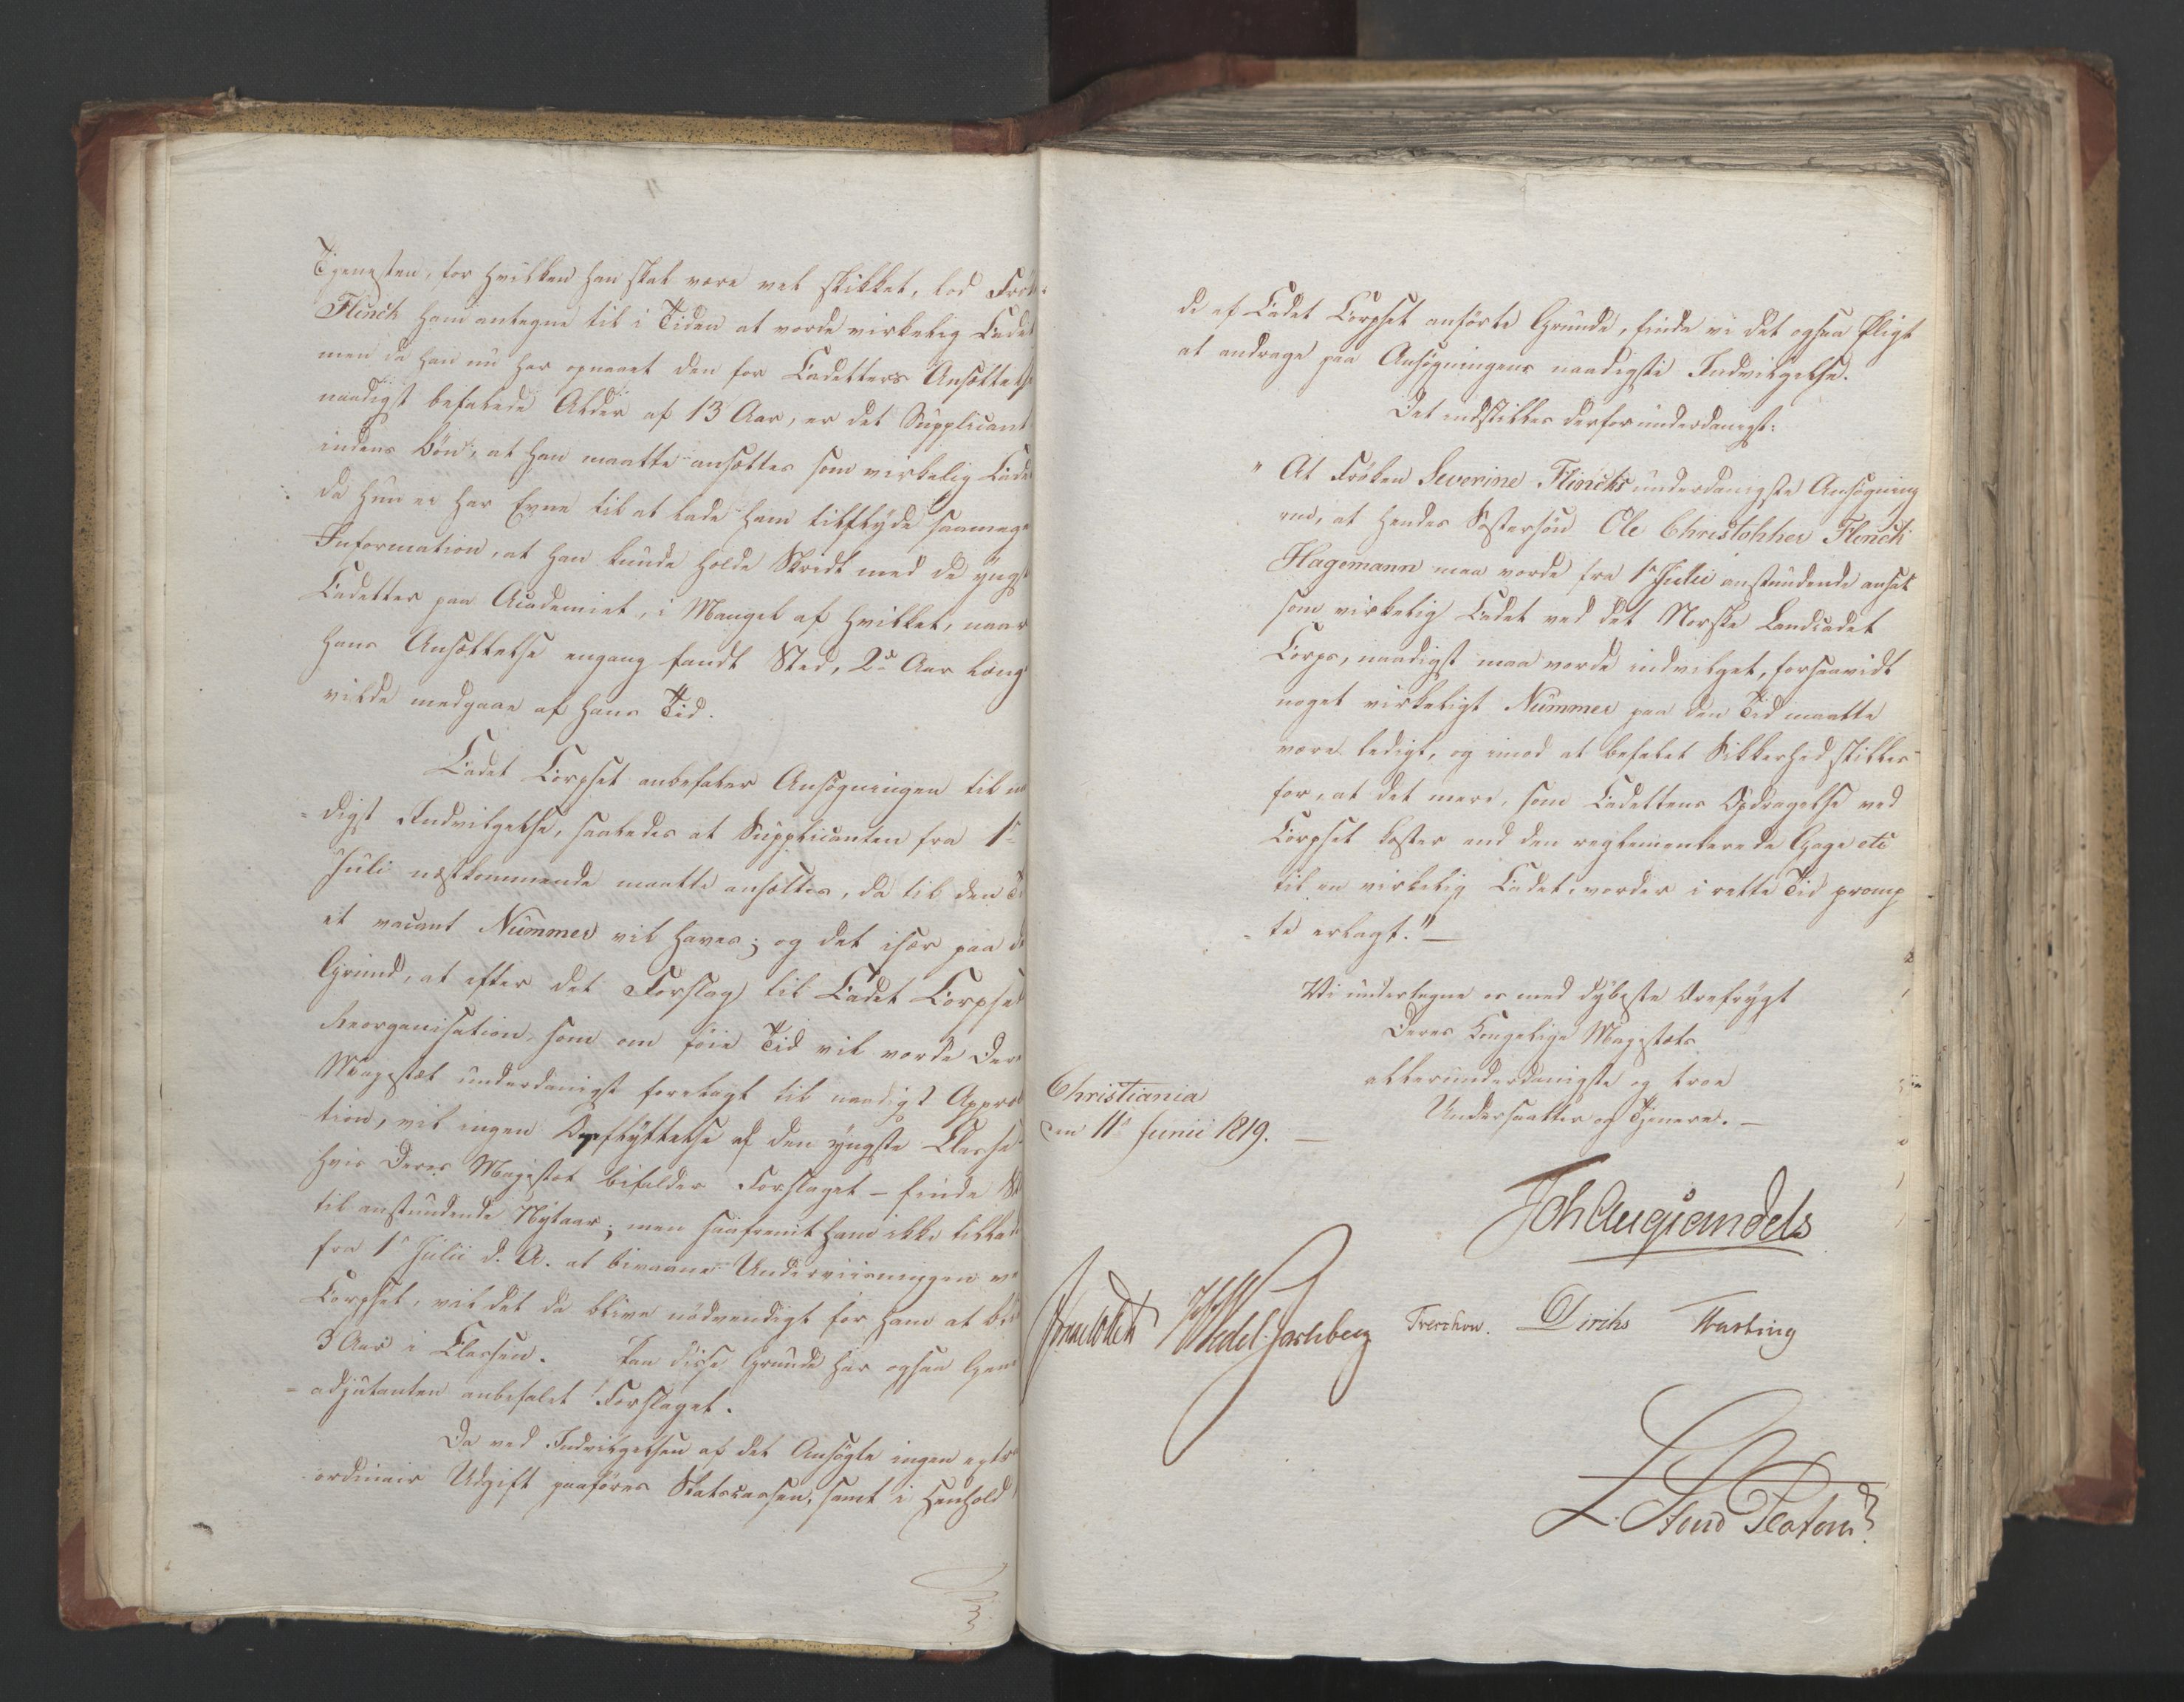 Tjenesten, for hvilken han skal være vel skikket, lod Frök:
Flinch ham antegne til i Tiden at vorde virkelig Cadet
men da han nu har opnaaet den for Cadetters Ansættelse
naadigst befalede Alder af 13 Aar, er det Supplicant
indens Bön, at han maatte ansættes som virkelig Cadet
da hun ei har Evne til at lade ham tilflyde saameget
Information, at han kunde holde Skridt med de yngste
Cadetter paa Academiet, i Mangel af hvilket, naar
hans Ansættelse engang fandt Sted, 2de Aar længe
vilde medgaae af hans Tid.
Cadet Corpset anbefaler Ansögningen til naa
digst Indvilgelse, saaledes at Supplicanten fra 1ste
Juli næstkommende maatte ansættes, da til den Tid
et vacant Nummer vil haves; og det især paa den
Grund, at efter det Forslag til Cadet Corpsets
Reorganisation, som om föie Tid vil vorde Deres
Majestæt underdanigst forelagt til naadigst Approba
tion, vil ingen Opflyttelse af den yngste Classe
hvis Deres Majestæt bifalder Forslaget - finde Sted
til anstundende Nytaar; men saafremt ham ikke tillades
fra 1ste Julii d. A. at bivaane Underviisningen ved
Corpset, vil det da blive nödvendigt for ham at blive
3 Aar i Classen. Paa disse Grunde har ogsaa General
adjutanten anbefalet Forslaget.
Da ved Indvilgelsen af det Ansögte ingen extra
ordinair Udgift paaföres Statscassen, samt i Henhold
de af Cadet Corpset anförte Grunde, finde vi det ogsaa Pligt
at andrage paa Ansögningens naadigste Indvilgelse.
Det indstilles derfor underdanigst:
" At Fröken Severine Flinchs underdanigste Ansögning
om, at hendes Söstersön Ole Christopher Flinch
Hagemann maa vorde fra 1ste Julii anstundende ansat
som virkelig Cadet ved det Norske Landcadet
Corps, naadigst maa vorde indvilget, forsaavidt
noget virkeligt Nummer paa den Tid maatte
være ledigt, og imod at befalet Sikkerhed stilles
for, at det mere, som Cadettens Opdragelse ved
Corpset koster end den reglementerede Gage etc
til en virkelig Cadet, vorder i rette Tid promp
te erlagt."
Vi undertegne os med dybeste Ærefrygt
Deres Kongelige Majestæts
allerunderdanigste og troe
Undersaatter og Tjenere.
Christiania
den 11te Junii 1819.
Joh Aug Sandels
Sommerhielm HWedel Jarlsberg Treschow. Diriks Fasting
L. Stoud Platou